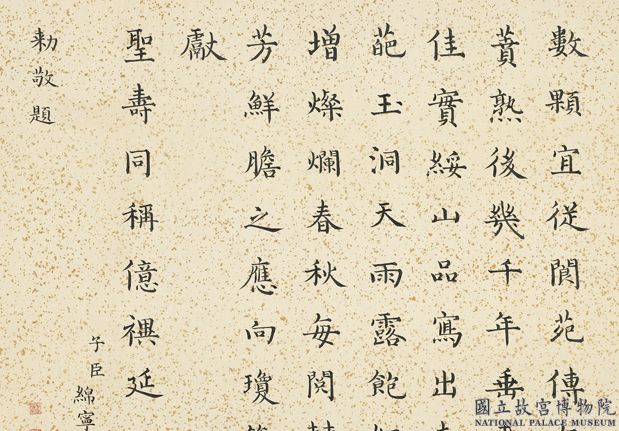 數顆宜從閬苑傳
蕡熟後幾千年垂
佳實綏山品寫出
葩玉洞天雨露飽
增燦爛春秋每閱
芳鮮瞻之應向瓊
獻
聖壽同稱億禩延
子臣綿寧
敕敬題
國立故宮博物院
NATIONAL PALACE MUSEUM